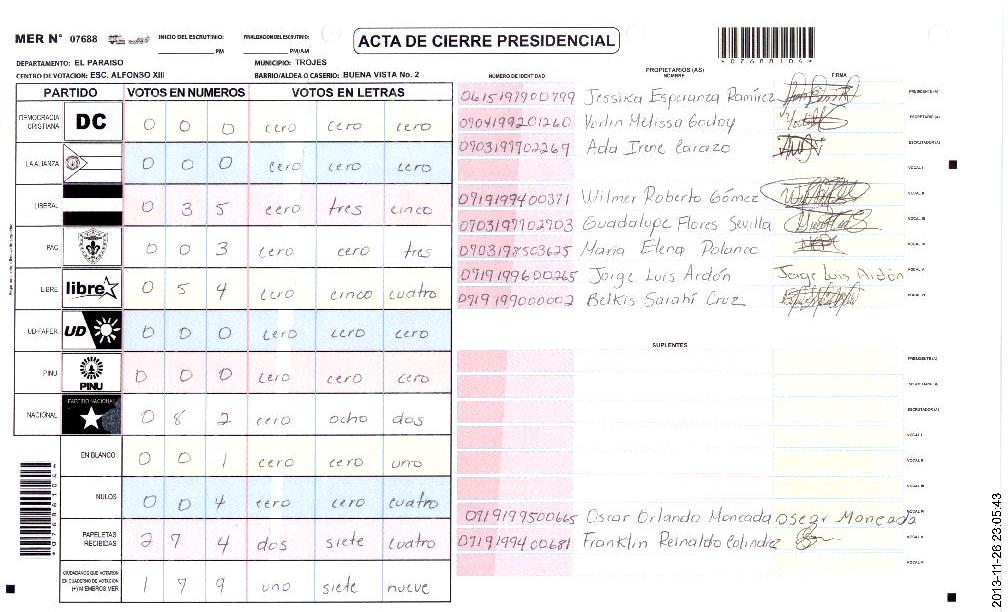 MER N° 07688 INICIO DEL ESCRUTINIO: PM FINALIZACION DEL ESCRUTINIO: PM/AM ACTA DE CIERRE PRESIDENCIAL
*07688104*
DEPARTAMENTO: EL PARAISO MUNICIPIO: TROJES
CENTRO DE VOTACION: ESC. ALFONSO XIII BARRIO/ALDEA O CASERIO: BUENA VISTA No. 2
PARTIDO VOTOS EN NUMEROS VOTOS EN LETRAS
DEMOCRACIA CRISTIANA DC 0 0 0 cero cero cero
LA ALIANZA 0 0 0 cero cero cero
LIBERAL 0 3 5 cero tres cinco
PAC 0 0 3 cero cero tres
LIBRE libre 0 5 4 cero cinco cuatro
UD-FAPER UD 0 0 0 cero cero cero
PINU PINU 0 0 0 cero cero cero
NACIONAL PARTIDO NACIONAL 0 8 2 cero ocho dos
EN BLANCO 0 0 1 cero cero uno
NULOS 0 0 4 cero cero cuatro
PAPELETAS RECIBIDAS 2 7 4 dos siete cuatro
CIUDADANOS QUE VOTARON EN CUADERNO DE VOTACION (+) MIEMBROS MER 1 7 9 uno siete nueve
PROPIETARIOS (AS)
NUMERO DE IDENTIDAD NOMBRE FIRMA
0615197900799 Jessika Esperanza Ramírez PRESIDENTE(A)
0904199201260 Melissa Godoy SECRETARIO(A)
0903199702269 Ada Irene Carazo ESCRUTADOR(A)
VOCAL I
0719199400371 Wilmer Roberto Gómez VOCAL II
0703197702903 Guadalupe Flores Sevilla VOCAL III
0703198503625 Maria Elena Polanco VOCAL IV
0719199600265 Jorge Luis Ardón Jorge Luis Ardón VOCAL V
0719199000002 Belkis Sarahí Cruz VOCAL VI
SUPLENTES
PRESIDENTE(A)
SECRETARIO(A)
ESCRUTADOR(A)
VOCAL I
VOCAL II
VOCAL III
0719199500665 Oscar Orlando Moncada Oscar Moncada VOCAL IV
0719199400681 Franklin Reinaldo Colindrez VOCAL V
VOCAL VI
*07688104*
2013-11-26 23:05:43